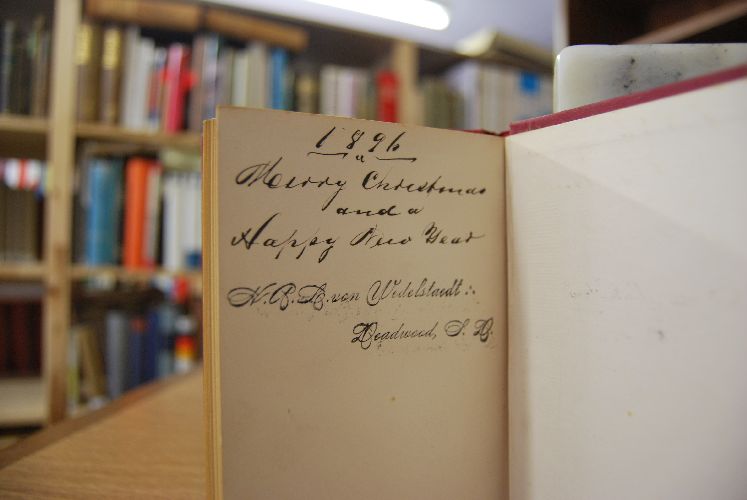 1896
a
Merry Christmas
and a
Happy New Year
H. R. A. von Wedelstaedt
Deadwood, S. D.